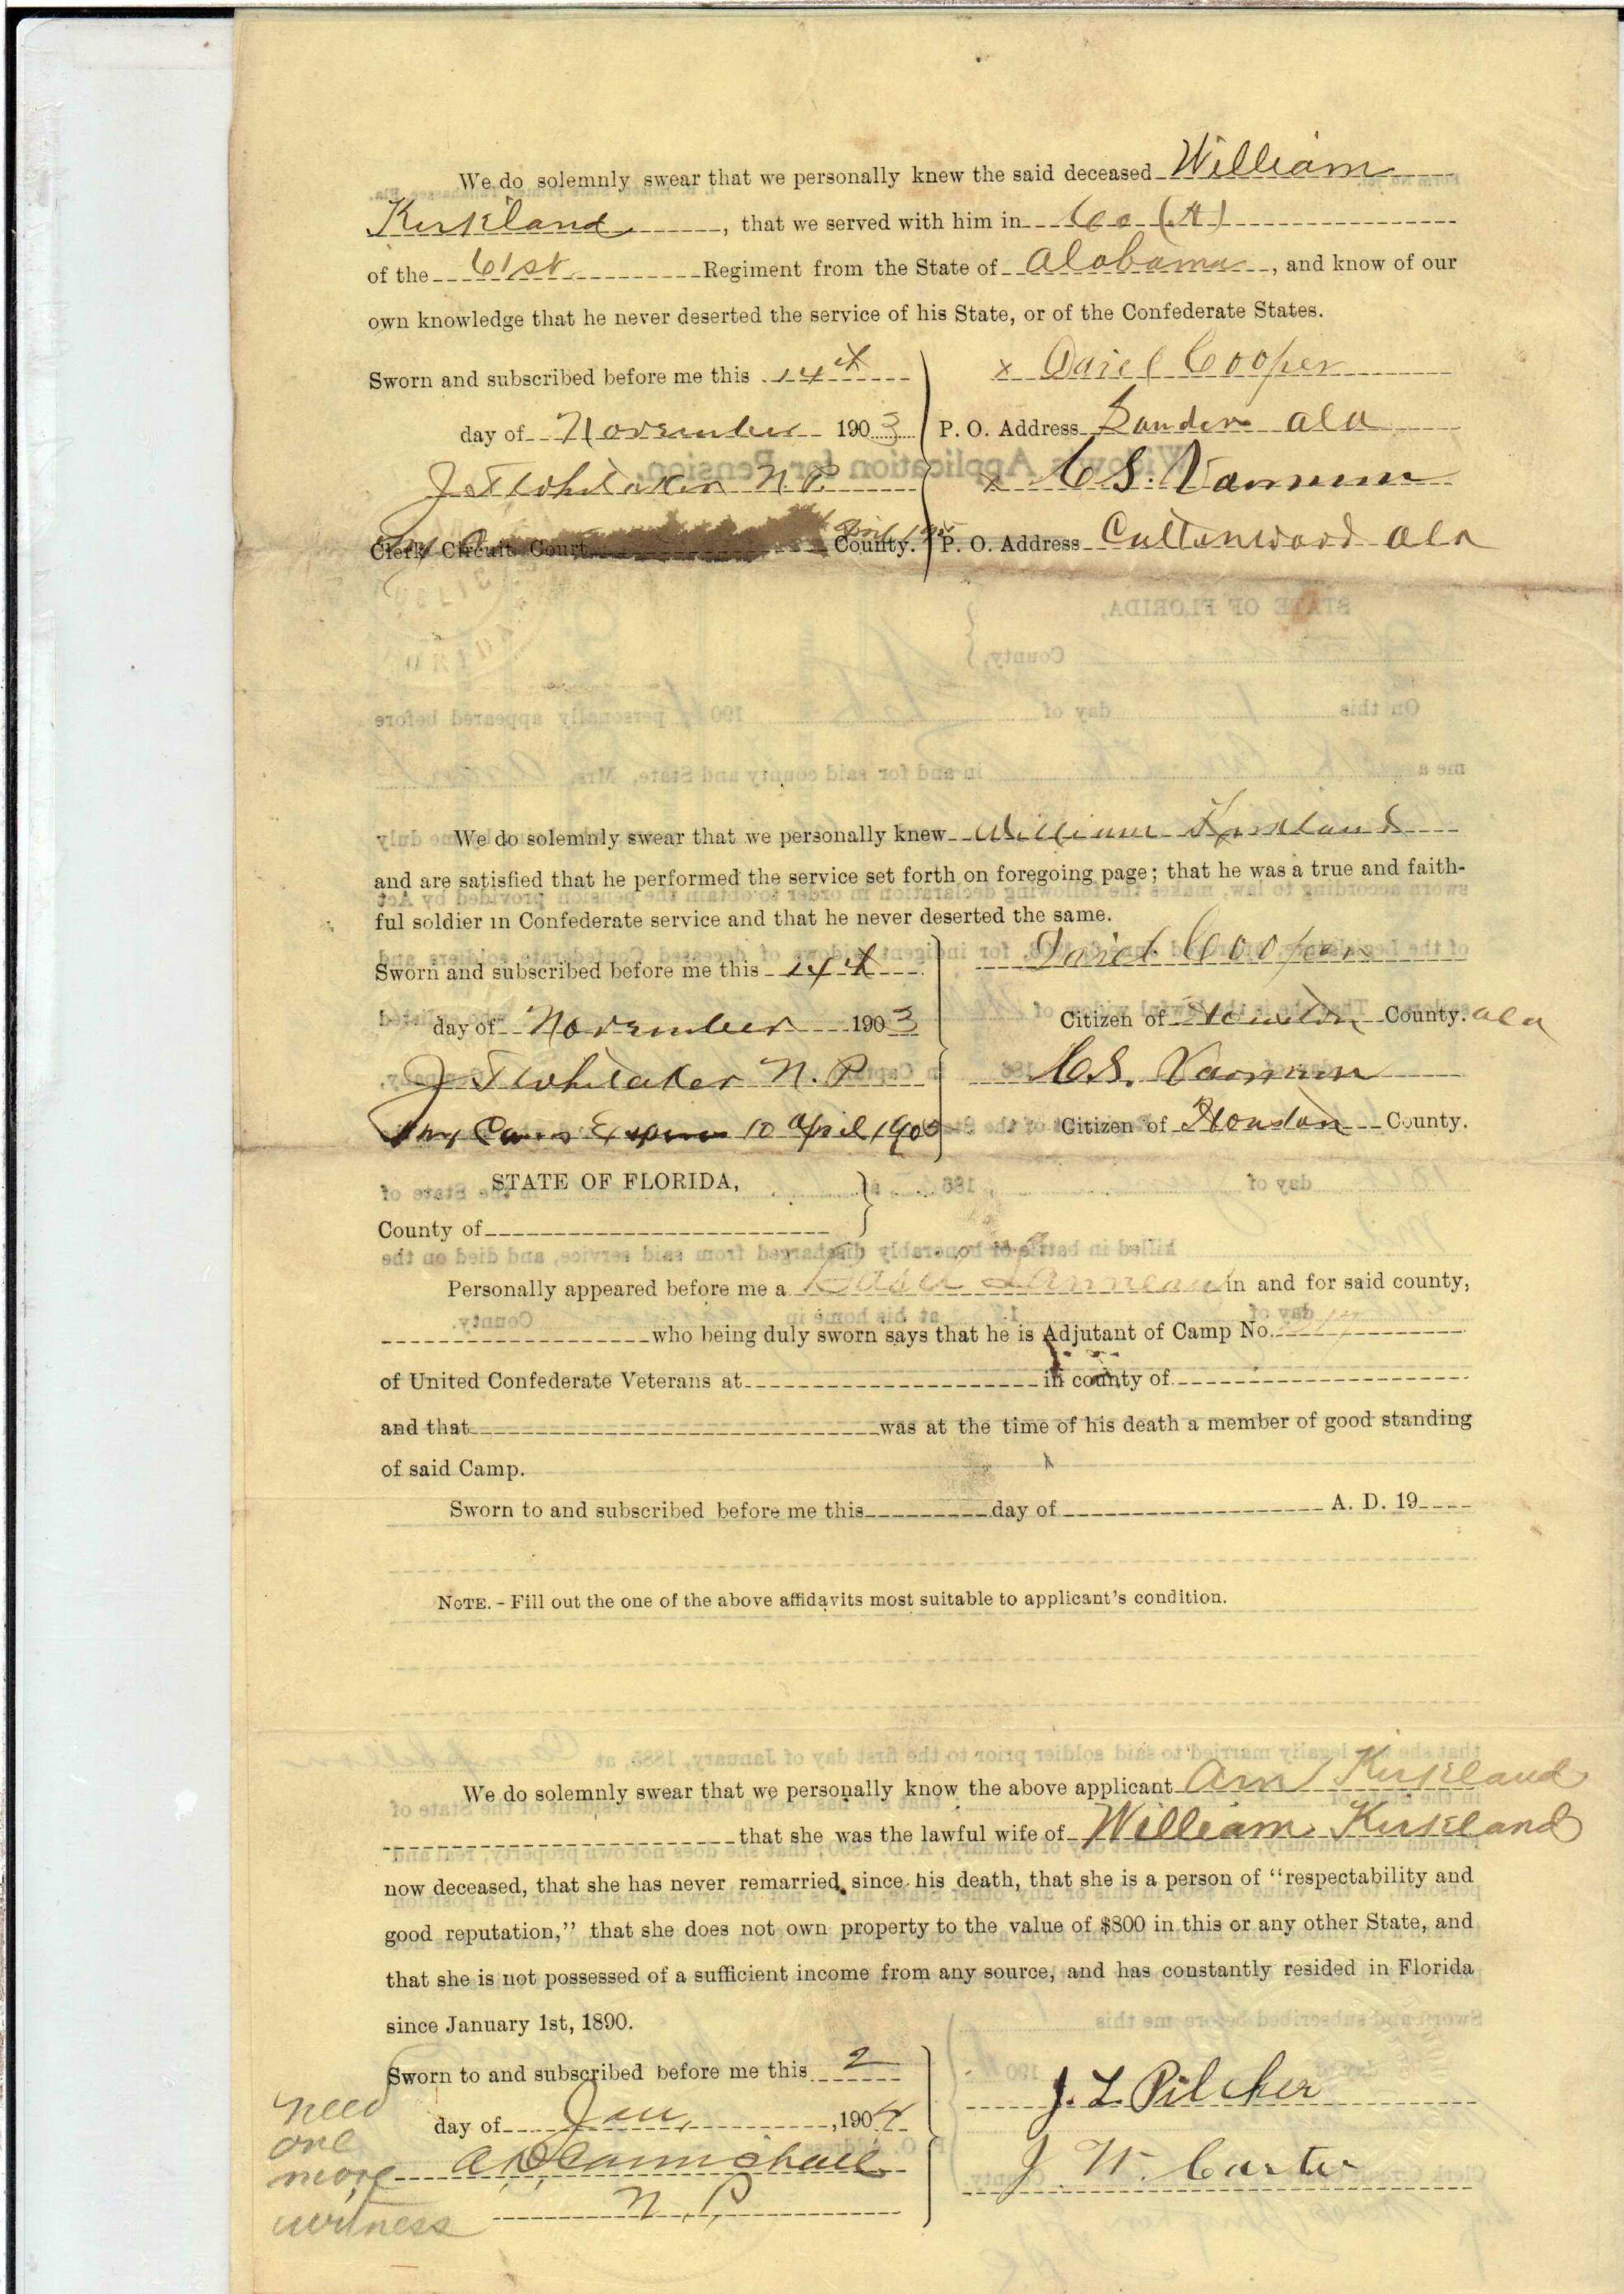 We do solemnly swear that we personally knew the said deceased William
Kirkland, that we served with him in Co (A)
of the 61st Regiment from the State of Alabama, and know of our
own knowledge that he never deserted the service of his State, or of the Confederate States.
Sworn and subscribed before me this 14th
x Daniel Cooper
day of November 1903
P. O. Address Ala
J T Whitaker N. P.
x C S.
Clerk Circuit Court County.
P. O. Address Cottonwood Ala
We do solemnly swear that we personally knew William Kirkland
and are satisfied that he performed the service set forth on foregoing page; that he was a true and faith-
ful soldier in Confederate service and that he never deserted the same.
Sworn and subscribed before me this 14th
Daniel Cooper
day of November 1903
Citizen of Houston County. Ala
J T Whitaker N. P.
C. S.
My Comis Expires 10 April 1905
Citizen of Houston County.
STATE OF FLORIDA,
County of
Personally appeared before me a in and for said county,
who being duly sworn says that he is Adjutant of Camp No.
of United Confederate Veterans at in county of
and that was at the time of his death a member of good standing
of said Camp.
Sworn to and subscribed before me this day of A. D. 19
NOTE. - Fill out the one of the above affidavits most suitable to applicant's condition.
We do solemnly swear that we personally know the above applicant Ann Kirkland
that she was the lawful wife of William Kirkland
now deceased, that she has never remarried since his death, that she is a person of "respectability and
good reputation," that she does not own property to the value of $800 in this or any other State, and
that she is not possessed of a sufficient income from any source, and has constantly resided in Florida
since January 1st, 1890.
Sworn to and subscribed before me this 2
day of Jan, 1904
J. L. Pilcher
N. P.
J. W. Carter
need
one
more
witness